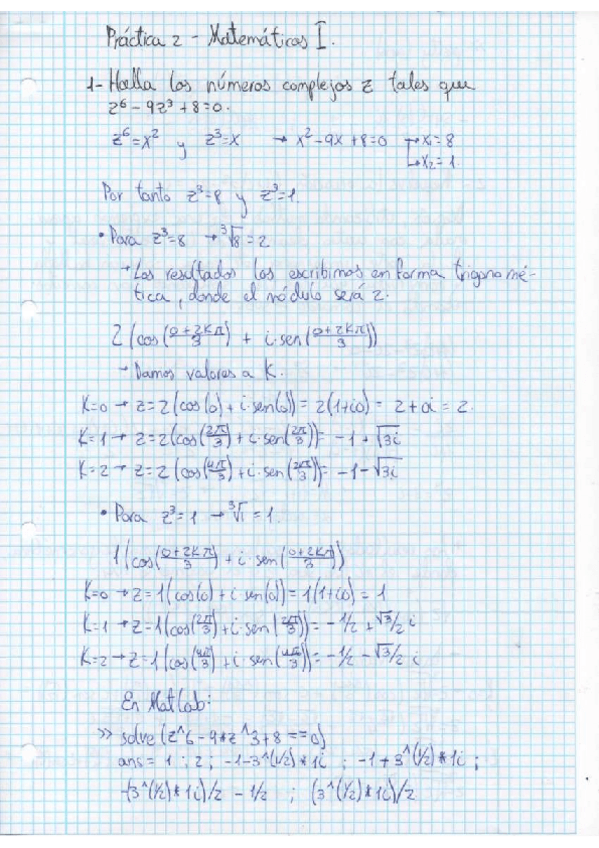 Práctica 2 - Matemáticas I.
1- Halla los números complejos z tales que
z⁶ - 9z³ + 8 = 0.
z⁶ = x² y z³ = x → x² - 9x + 8 = 0 → x₁ = 8
→ x₂ = 1
Por tanto z³ = 8 y z³ = 1.
• Para z³ = 8 → ³√8 = 2
→ Los resultados los escribimos en forma trigonomé-
tica, donde el módulo será 2.
2 (cos((0 + 2kπ)/3) + i · sen((0 + 2kπ)/3))
→ Damos valores a K.
K=0 → z = 2(cos(0) + i · sen(0)) = 2(1+i0) = 2 + 0i = 2.
K=1 → z = 2(cos(2π/3) + i · sen(2π/3)) = -1 + √3i
K=2 → z = 2(cos(4π/3) + i · sen(4π/3)) = -1 - √3i
• Para z³ = 1 → ³√1 = 1.
1 (cos((0 + 2kπ)/3) + i · sen((0 + 2kπ)/3))
K=0 → z = 1(cos(0) + i · sen(0)) = 1(1+i0) = 1
K=1 → z = 1(cos(2π/3) + i · sen(2π/3)) = -1/2 + √3/2 i
K=2 → z = 1(cos(4π/3) + i · sen(4π/3)) = -1/2 - √3/2 i
En Matlab:
>> solve(z^6 - 9*z^3 + 8 == 0)
ans = 1 ; 2 ; -1-3^(1/2)*1i ; -1+3^(1/2)*1i ;
-(3^(1/2)*1i)/2 - 1/2 ; (3^(1/2)*1i)/2